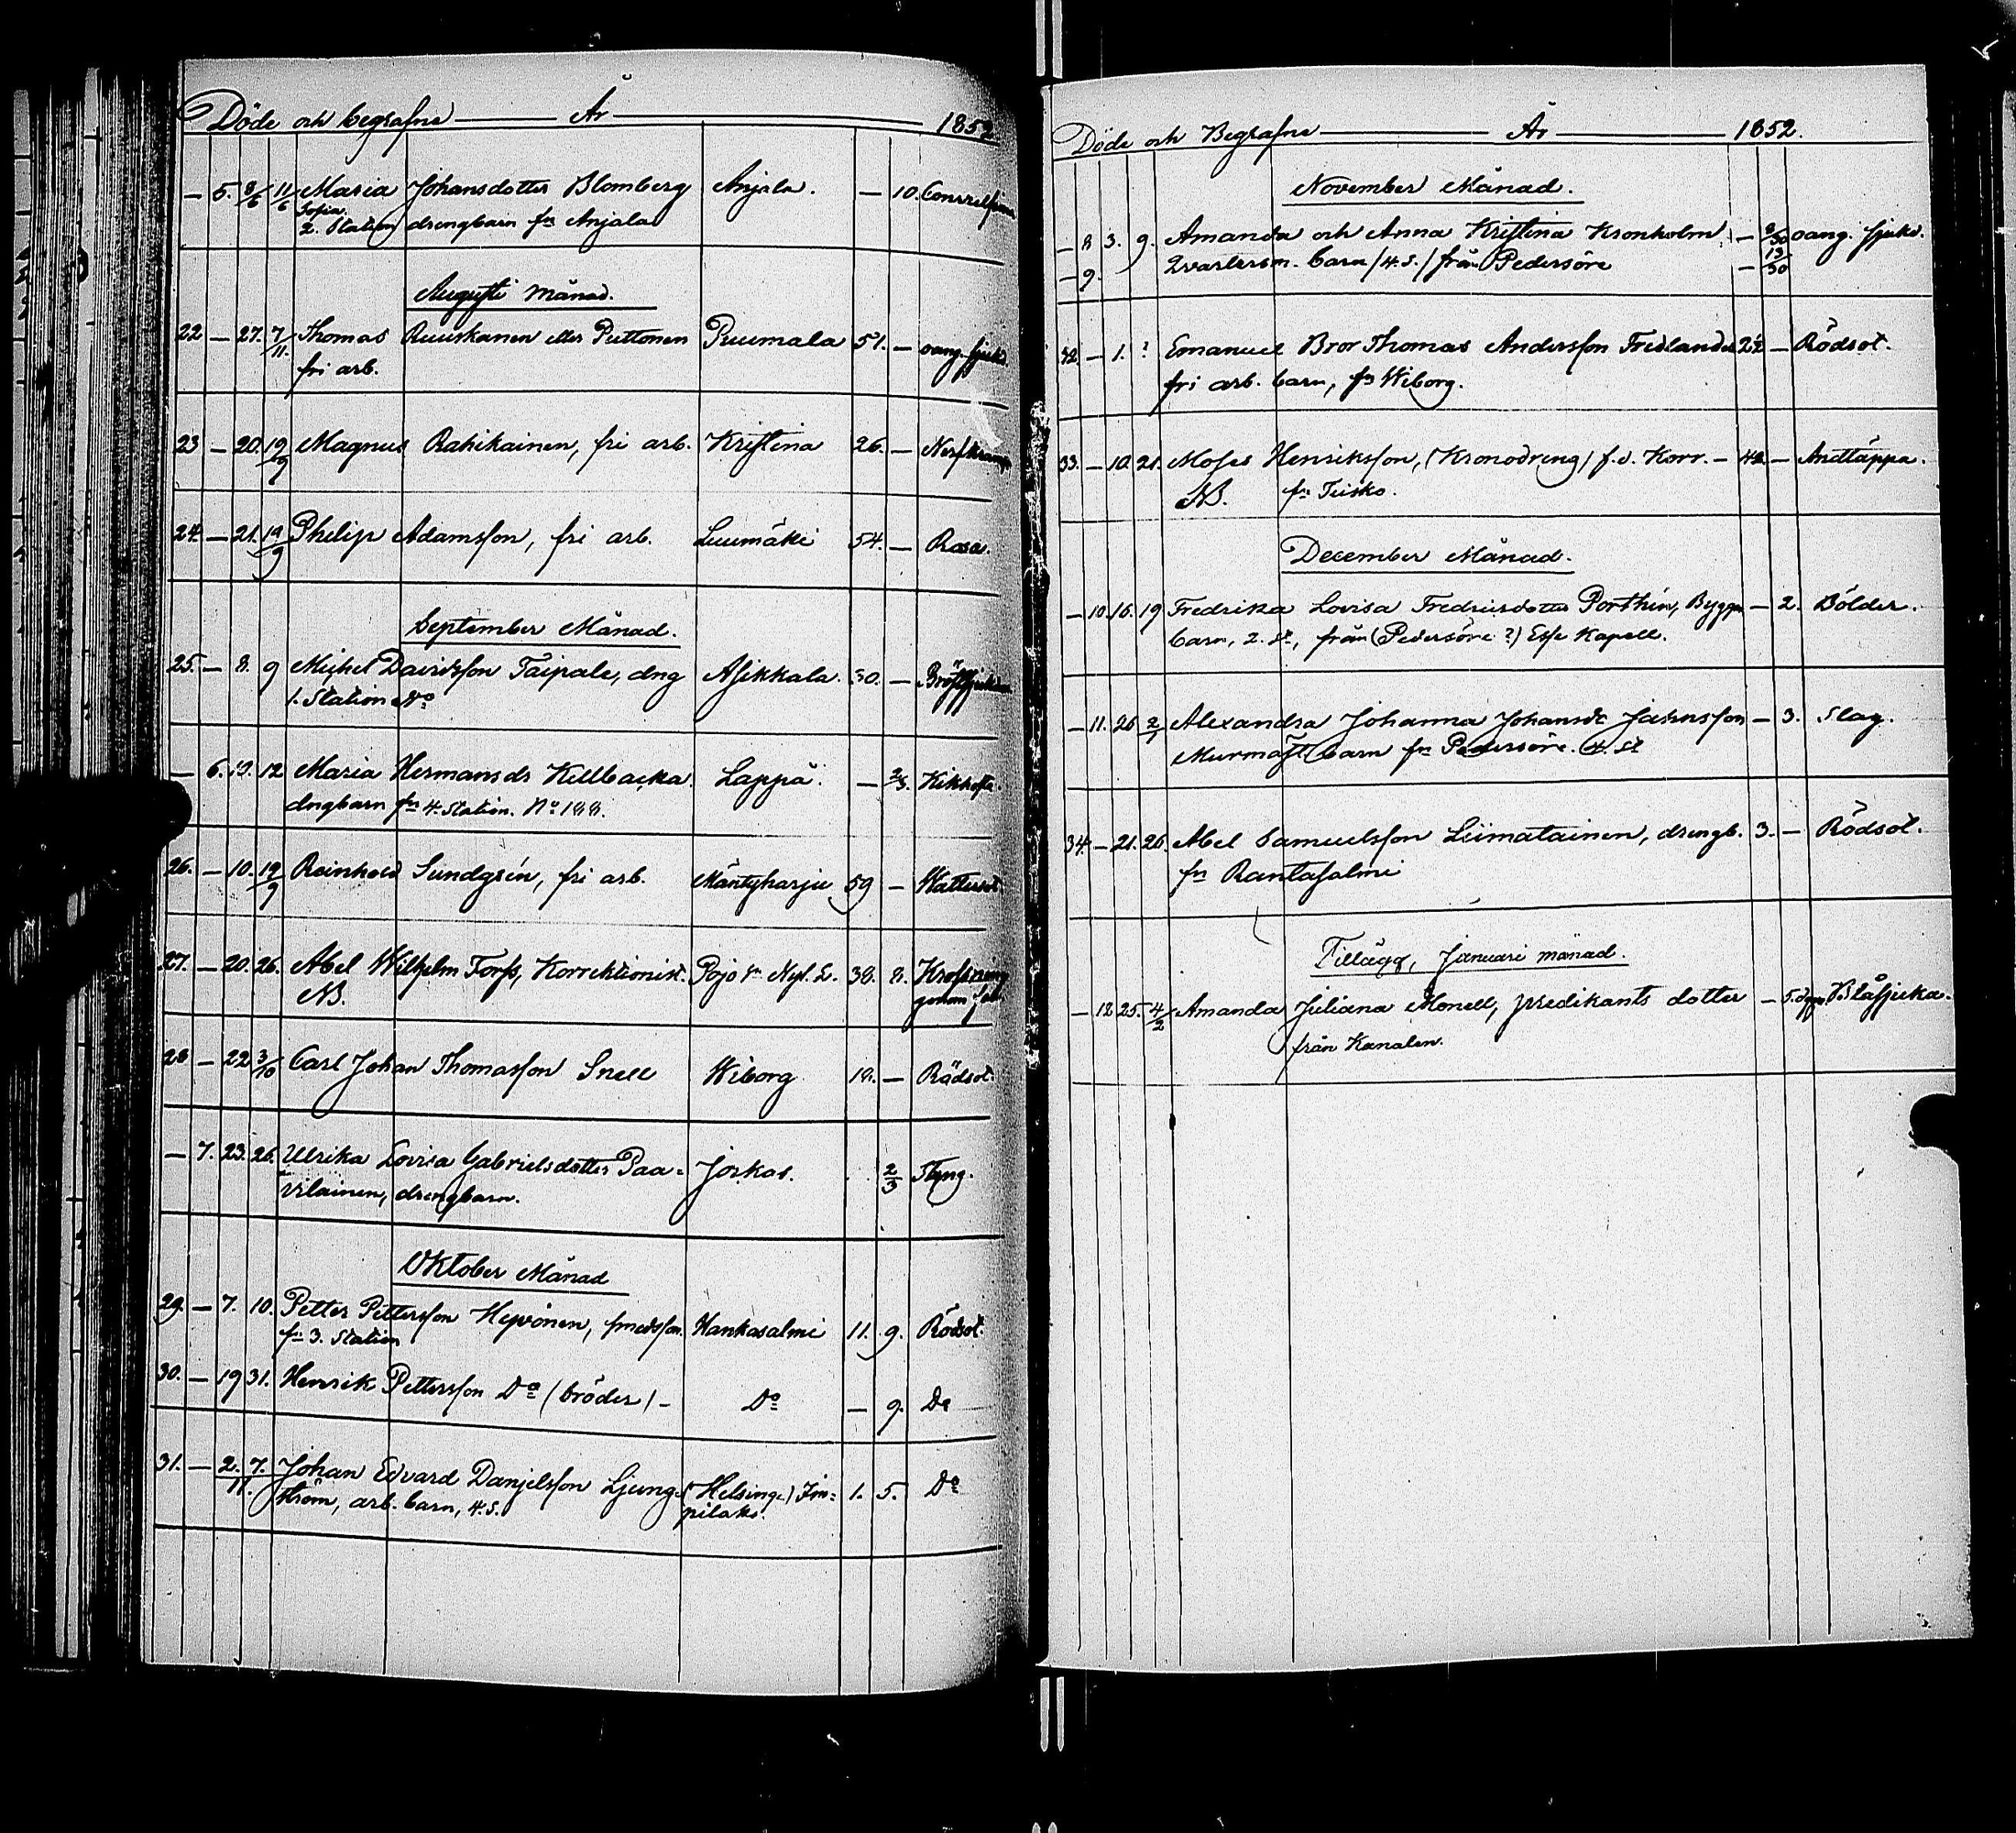 Döde och begrafne — År — 1852
— 5. 8/6 11/6 Maria Johansdotter Blomberg Anjala. — 10.
Sofia
2. Station drengbarn fn Anjala
Augusti Månad.
22 — 27. 7/11. Thomas Ruuskanen eller Puttonen Puumala 51. — oang. sjukd.
fri arb.
23 — 20. 19/9 Magnus Rahikainen, fri arb. Kristina 26. —
24. — 21. 19/9 Philip Adamsson, fri arb. Luumäki 54. — Rosa.
September Månad.
25. — 8. 9 Michel Davidsson Taipale, dng Asikkala. 30. — Bröstsjukdom
1. Station No
— 6. 10. 12 Maria Hermansdr Killbacka Lappå. — 2/3. Kikhosta.
dngbarn fn 4. Station. No 188.
26. — 10. 19/9 Reinhold Sundgrén, fri arb. Mäntyharju 59 — Wattensot
27. — 20. 26. Abel Wilhelm Forss, Korrektionist. Pojo sn Nyl. L. 38. 8. Krossning
NB. genom fall
28 — 22 3/10 Carl Johan Thomasson Snell Wiborg 18. — Rödsot.
— 7. 23. 26. Ulrika Lovisa Gabrielsdotter Paa-
vilainen, drengbarn. Jorkas. 2/3 Styng.
Oktober Månad
29. — 7. 10. Petter Pettersson Heyvönen, smedsson. Hankasalmi 11. 9. Rödsot.
fn 3. Station
30. — 19 31. Henrik Pettersson Do (bröder) — Do — 9. Do
31. — 2. 7./11. Johan Edvard Danjelsson Ljung- (Helsinge) Im- 1. 5. Do
ström, arb. barn, 4. S. pilaks.
Döde och Begrafne — År — 1852.
November Månad.
— 8 3. 9. Amanda och Anna Kristina Kronholm, — 8/30 oang. sjukd.
— 9. Qvarlersm. barn (4. S.) från Pedersöre — 13/30
32. — 1. ? Emanuel Bror Thomas Andersson Fredlander 2 1/2 — Rödsot.
fri arb. barn, fn Wiborg.
33. — 10. 21. Moses Henriksson, (Kronodreng) f.d. Korr. — 42 — Andtäppa.
NB. fn Tusko.
December Månad.
— 10. 16. 19 Fredrika Lovisa Fredriksdotter Porthén, Byggm — 2. Bölder.
barn, 2. St., från (Pedersöre?) Esse Kapell.
— 11. 26 2/1 Alexandra Johanna Johansdr Jahnsson — 3. Slag.
Murmäst. barn fn Pedersöre. 4. St
34. — 21. 26. Abel Samuelsson Leimatainen, drengb. 3. — Rödsot.
fn Rantasalmi
Tillägg, Januari månad.
— 12 25. 4/2 Amanda Juliana Monell, predikants dotter — 5. dgr Blåsjuka.
från Kanalen.